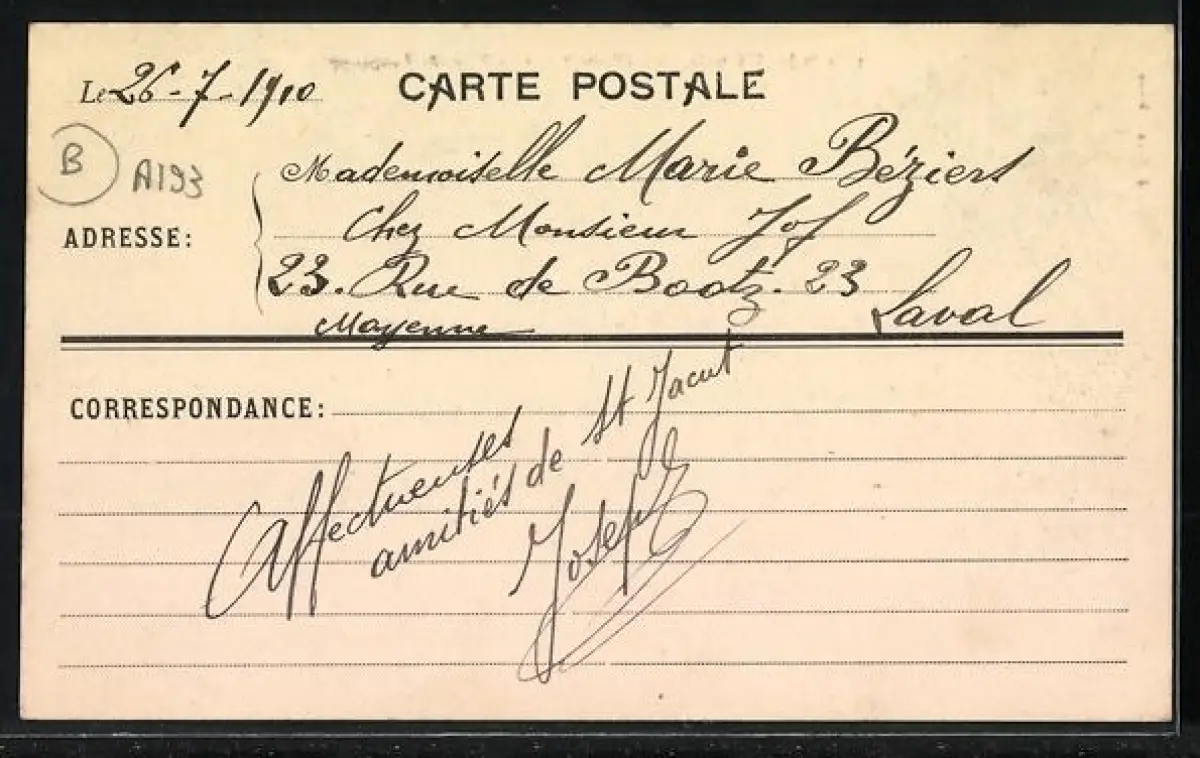 Le 26-7-1910
CARTE POSTALE
B
A193
Mademoiselle Marie Béziers
ADRESSE:
Chez Monsieur Jof
23. Rue de Bootz. 23
Laval
Mayenne
CORRESPONDANCE:
Affectueuses
amitiés de St Jacut
Joseph